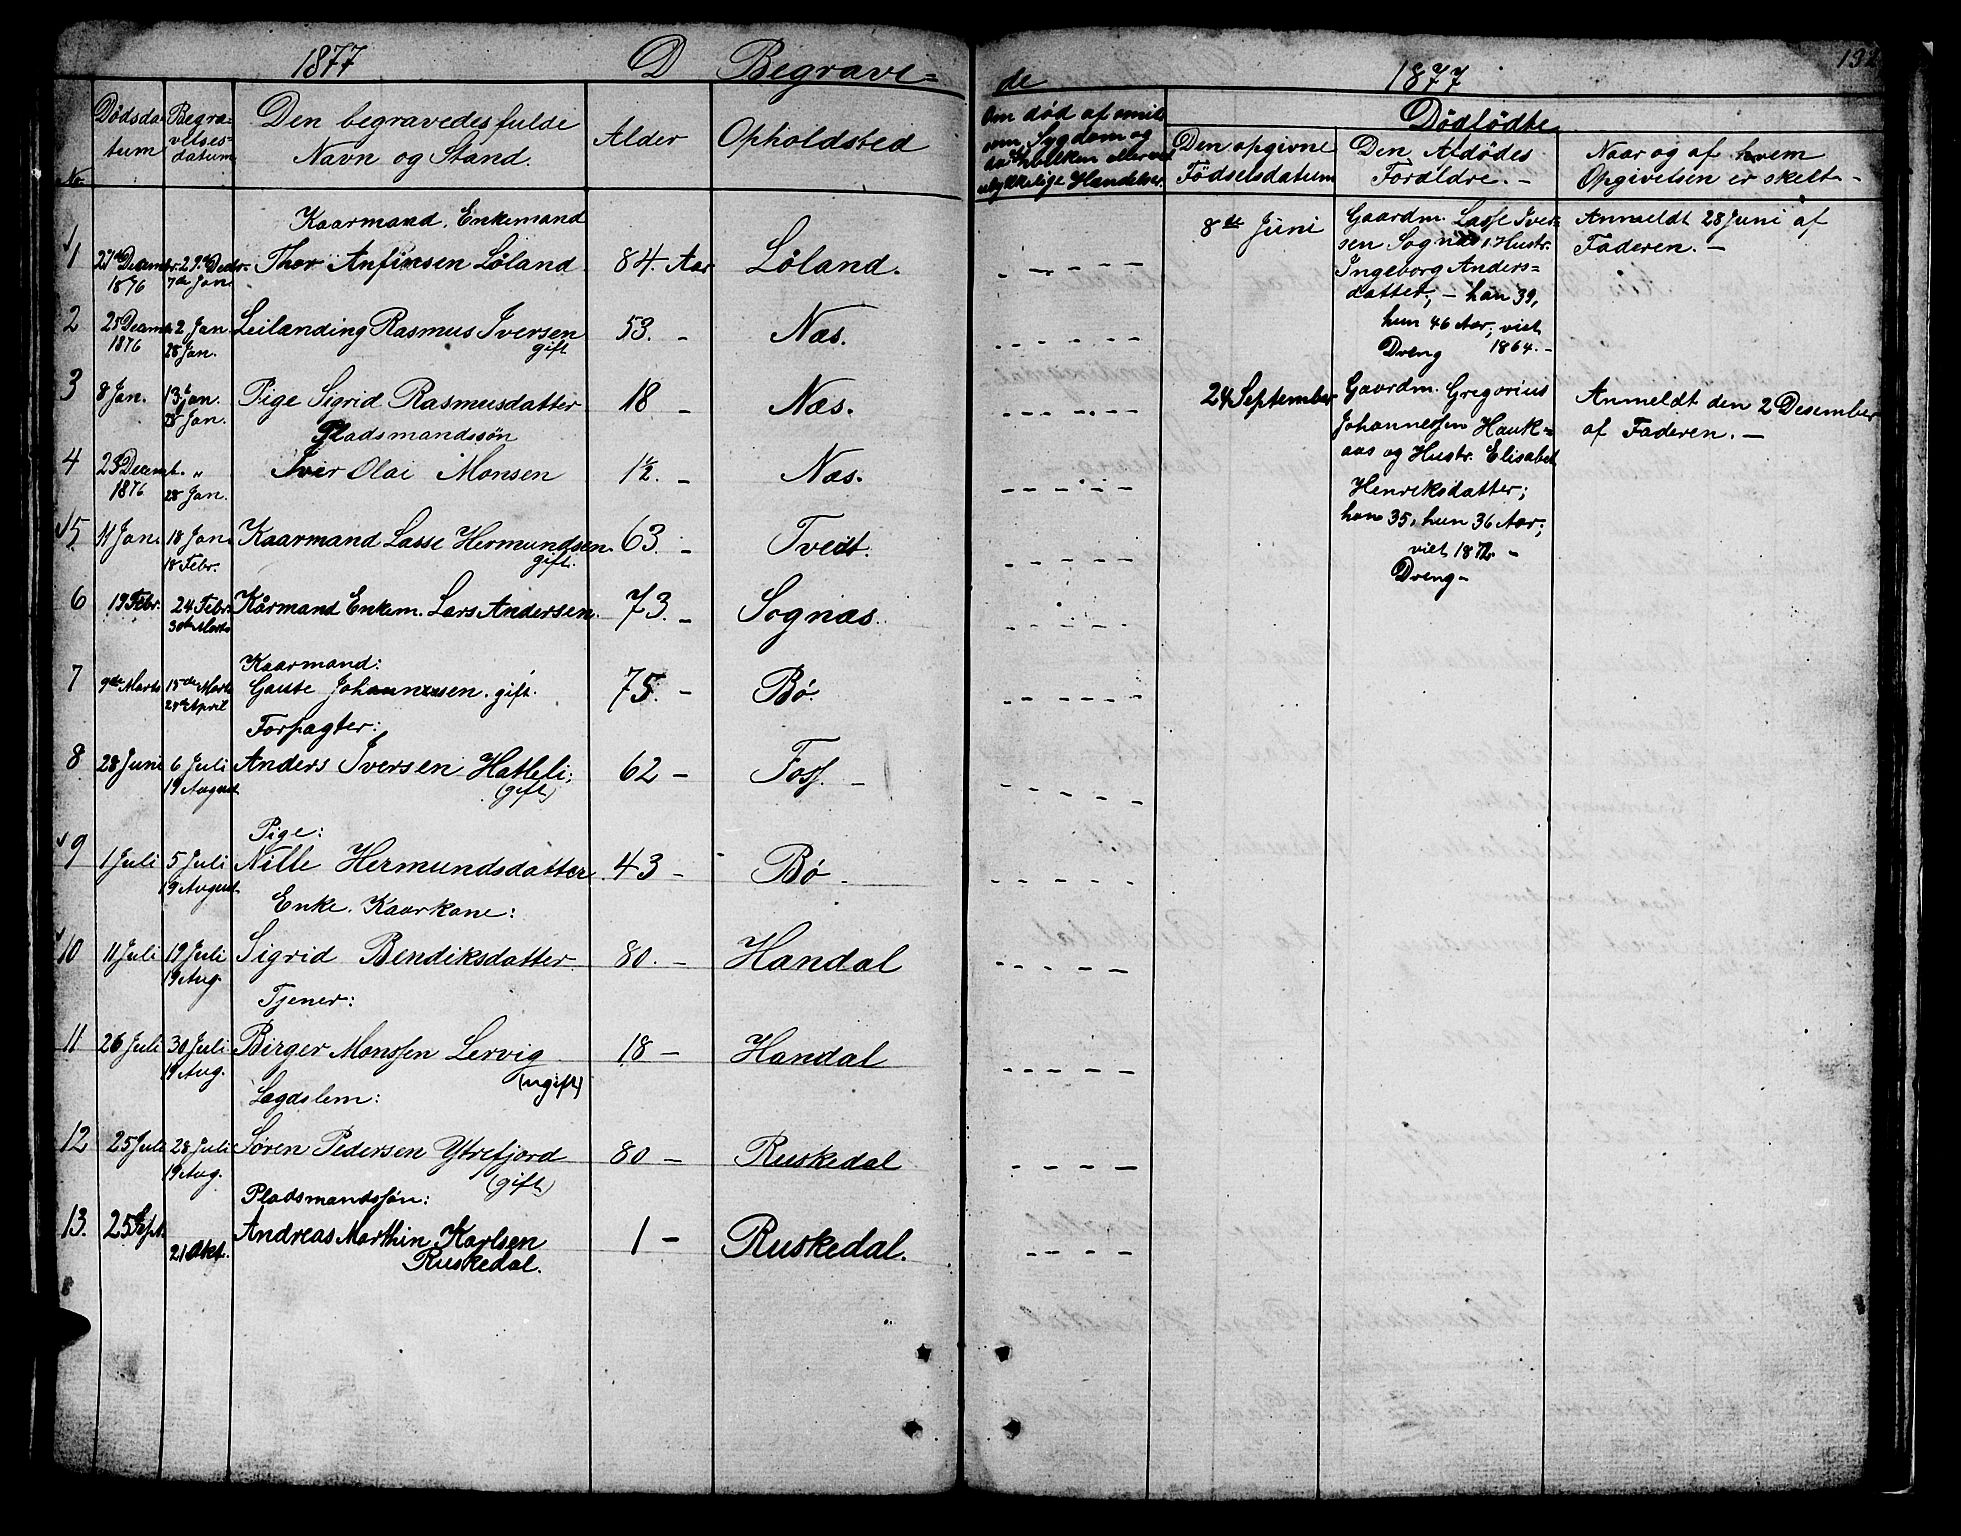 1877 D Begrave=
No.
Dødsda
tum
Begra=
velses=
datum
Den begravedes fulde
Navn og Stand.
Alder
Opholdsted
Kaarmand, Enkemand
1 Decembr. 29de Decbr. Thor Anfinsen Løland 84. Aar Løland.
1876 7de Jan.
2 25 Decemb. 2 Jan. Leilænding Rasmus Iversen 53. - Næs.
1876 28 Jan. gift
3 8 Jan. 13 Jan. Pige Sigrid Rasmusdatter 18 - Næs.
28 Jan.
Pladsmandssøn
4 Decemb. " Iver Olai Monsen 1½. - Næs.
1876 28 Jan.
5 11 Jan. 18 Jan. Kaarmand Lasse Hermundsen. 63. - Tvedt.
18 Febr. gift.
6 19 Febr. 24 Febr. Kårmand Enkem. Lars Andersen. 73. - Sognæs.
30de Marts
Kaarmand:
7 9de Marts 15de Marts Gaute Johannessen. gift. 75. - Bø.
April
Forpagter:
8 28 Juni 6 Juli Anders Iversen Hatleli; 62 - Foss. -
19 August (gift)
Pige:
9 1 Juli 5 Juli Nille Hermundsdatter 43 - Bø -
19 August
Enke. Kaarkone:
10 11 Juli 19 Juli Sigrid Bendiksdatter 80. - Handal
19 Aug.
Tjener:
11 26 Juli 30 Juli Birger Monssen Lervig 18 - Handal
19 Aug. (ugift)
Lægdslem:
12 25 Juli 28 Juli Søren Pedersen Ytrefjord 80 - Ruskedal
19 Aug. (gift)
Pladsmandssøn:
13. 25 Sept. Andreas Marthin Karlsen 1 - Ruskedal.
21 Okt. Ruskedal.
de 1877
Om død af smit=
som Sygdom og
da hvilken eller ved
ulykkelige Hændelser.
Dødfødte
Den opgivne
Fødselsdatum
Den Afdødes
Forældre. -
Naar og af hvem
Opgivelsen er skelt -
8de Juni
Gaardm. Lasse Iver=
sen Sognæs . Hustr.
Ingeborg Anders=
datter; - han 39,
hun 46 Aar, viet
Dreng 1864. -
Anmeldt 28 Juni af
Faderen. -
24 September
Gaardm. Gregorius
Johannessen Hauk=
aas og Hustr. Elisabet
Henriksdatter;
han 35, hun 36 Aar;
viet 1872. -
Dreng -
Anmeldt den 2 Desember
af Faderen. -